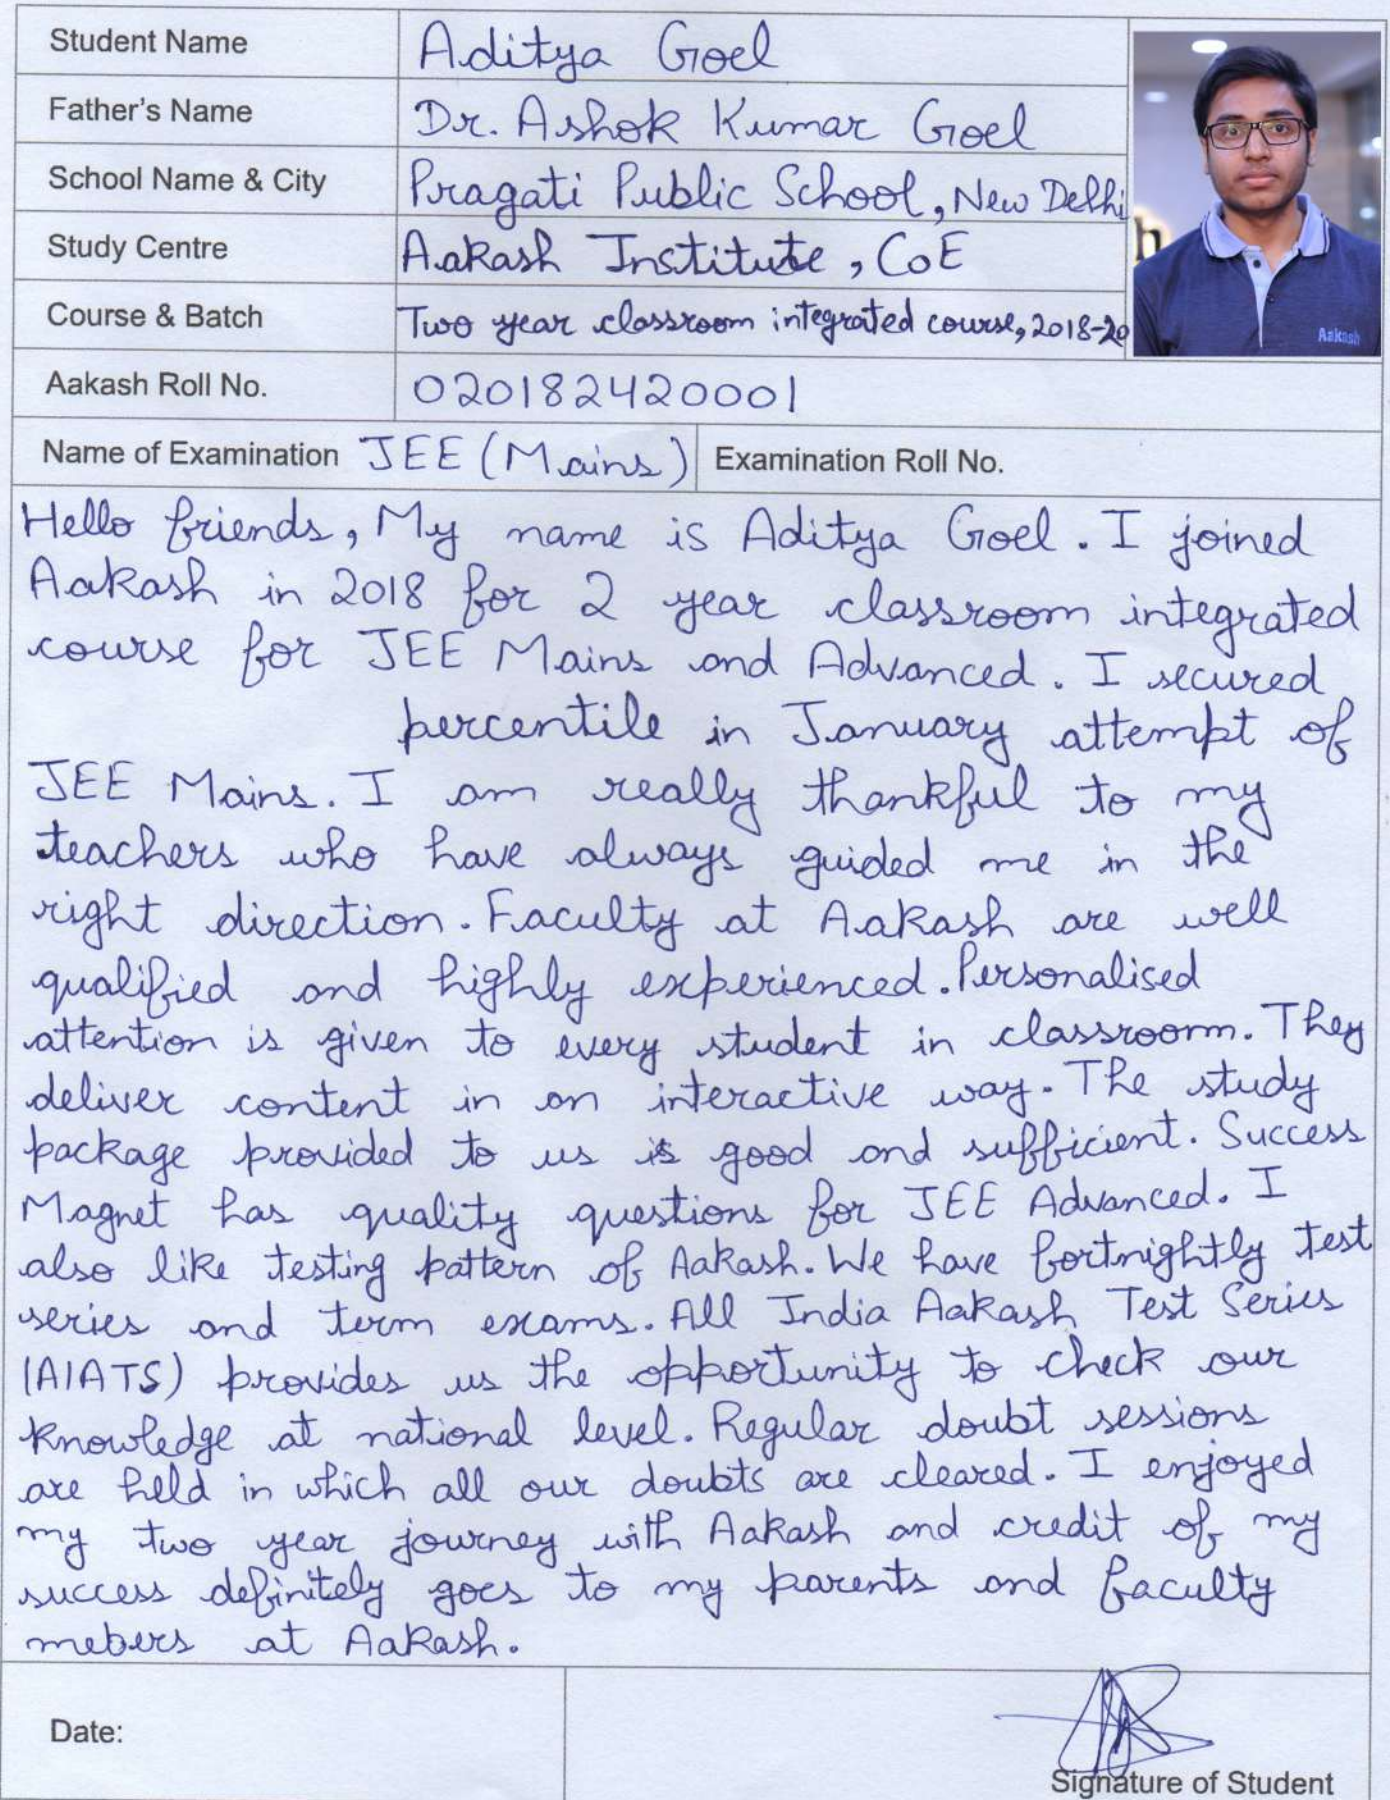 Student Name Aditya Goel
Father's Name Dr. Ashok Kumar Goel
School Name & City Pragati Public School, New Delhi
Study Centre Aakash Institute, CoE
Course & Batch Two year classroom integrated course, 2018-20
Aakash
Aakash Roll No. 020182420001
Name of Examination JEE (Mains) Examination Roll No.
Hello friends, My name is Aditya Goel. I joined
Aakash in 2018 for 2 year classroom integrated
course for JEE Mains and Advanced. I secured
percentile in January attempt of
JEE Mains. I am really thankful to my
teachers who have always guided me in the
right direction. Faculty at Aakash are well
qualified and highly experienced. Personalised
attention is given to every student in classroom. They
deliver content in an interactive way. The study
package provided to us is good and sufficient. Success
Magnet has quality questions for JEE Advanced. I
also like testing pattern of Aakash. We have fortnightly test
series and term exams. All India Aakash Test Series
(AIATS) provides us the opportunity to check our
knowledge at national level. Regular doubt sessions
are held in which all our doubts are cleared. I enjoyed
my two year journey with Aakash and credit of my
success definitely goes to my parents and faculty
mebers at Aakash.
Date:
Signature of Student